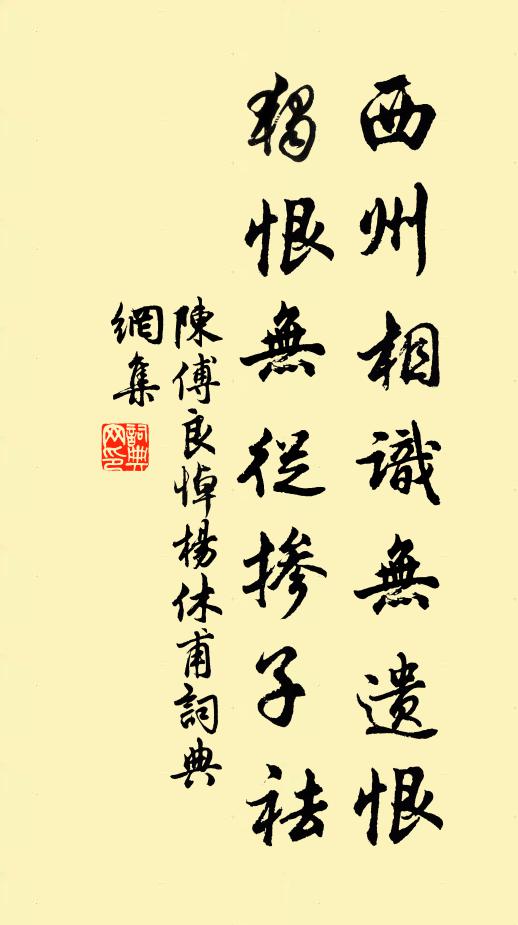 西州相識無遺恨
獨恨無從摻子袪
陳傅良悼楊休甫詞典
網集
詞典
网印